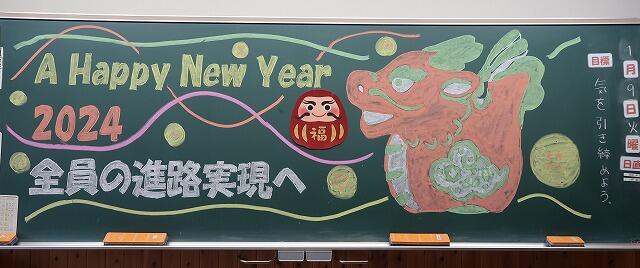 A Happy New Year
2024
全員の進路実現へ
福
1月9日火曜
日直
目標
気を引き締めよう。